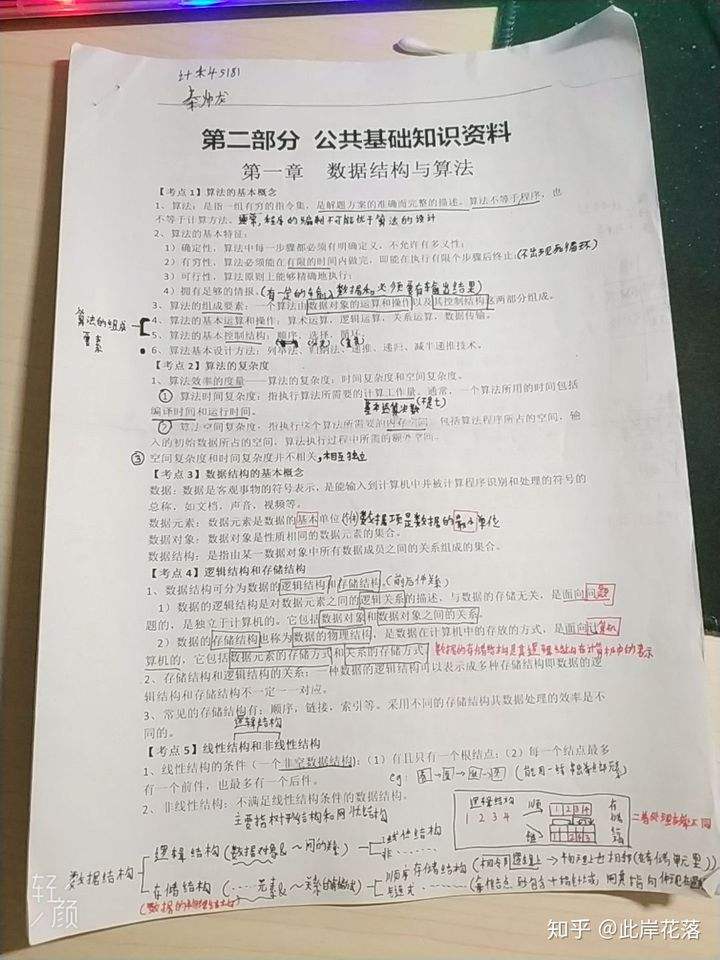 计本45181
第二部分 公共基础知识资料
第一章 数据结构与算法
【考点 1】算法的基本概念
1、算法：是指一组有穷的指令集，是解题方案的准确而完整的描述。算法不等于程序，也
不等于计算方法。通常，程序的编制不可能优于算法的设计
2、算法的基本特征：
1）确定性，算法中每一步骤都必须有明确定义，不允许有多义性；
2）有穷性，算法必须能在有限的时间内做完，即能在执行有限个步骤后终止；(不出现死循环)
3）可行性，算法原则上能够精确地执行；
4）拥有足够的情报。(有一定的输入数据和必须要有输出结果)
3、算法的组成要素：一个算法由数据对象的运算和操作以及其控制结构这两部分组成。
算法的组成要素
4、算法的基本运算和操作：算术运算，逻辑运算，关系运算，数据传输。
5、算法的基本控制结构：顺序，选择，循环。
6、算法基本设计方法：列举法、归纳法、递推、递归、减半递推技术。
【考点 2】算法的复杂度
1、算法效率的度量——算法的复杂度：时间复杂度和空间复杂度。
① 算法时间复杂度：指执行算法所需要的计算工作量。通常，一个算法所用的时间包括
编译时间和运行时间。 基本运算次数(不是七)
② 算法空间复杂度：指执行这个算法所需要的内存空间。包括算法程序所占的空间，输
入的初始数据所占的空间，算法执行过程中所需的额外空间。
③ 空间复杂度和时间复杂度并不相关，相互独立
【考点 3】数据结构的基本概念
数据：数据是客观事物的符号表示，是能输入到计算机中并被计算程序识别和处理的符号的
总称，如文档，声音，视频等。
数据元素：数据元素是数据的基本单位 数据项是数据的最小单位
数据对象：数据对象是性质相同的数据元素的集合。
数据结构：是指由某一数据对象中所有数据成员之间的关系组成的集合。
【考点 4】逻辑结构和存储结构
1、数据结构可分为数据的逻辑结构和存储结构。(前后件关系)
1）数据的逻辑结构是对数据元素之间的逻辑关系的描述，与数据的存储无关，是面向问题
题的，是独立于计算机的。它包括数据对象和数据对象之间的关系。
2）数据的存储结构也称为数据的物理结构，是数据在计算机中的存放的方式，是面向计算机
算机的，它包括数据元素的存储方式和关系的存储方式 数据的存储结构是其逻辑结构在计算机中的表示
2、存储结构和逻辑结构的关系：一种数据的逻辑结构可以表示成多种存储结构即数据的逻
辑结构和存储结构不一定一一对应。
3、常见的存储结构有：顺序，链接，索引等。采用不同的存储结构其数据处理的效率是不
同的。
逻辑结构
【考点 5】线性结构和非线性结构
1、线性结构的条件（一个非空数据结构）：（1）有且只有一个根结点；（2）每一个结点最多
有一个前件，也最多有一个后件。
eg：
2、非线性结构：不满足线性结构条件的数据结构。
主要指树形结构和网状结构
逻辑结构 顺 1 2 3 4 存储结构
1 2 3 4 链
数据结构
逻辑结构 (数据对象&~间的关系)
线性结构
非……
存储结构 (……元素&~关系的存储方式)
顺序存储结构
(数据的物理结构)
轻颜
知乎 @此岸花落